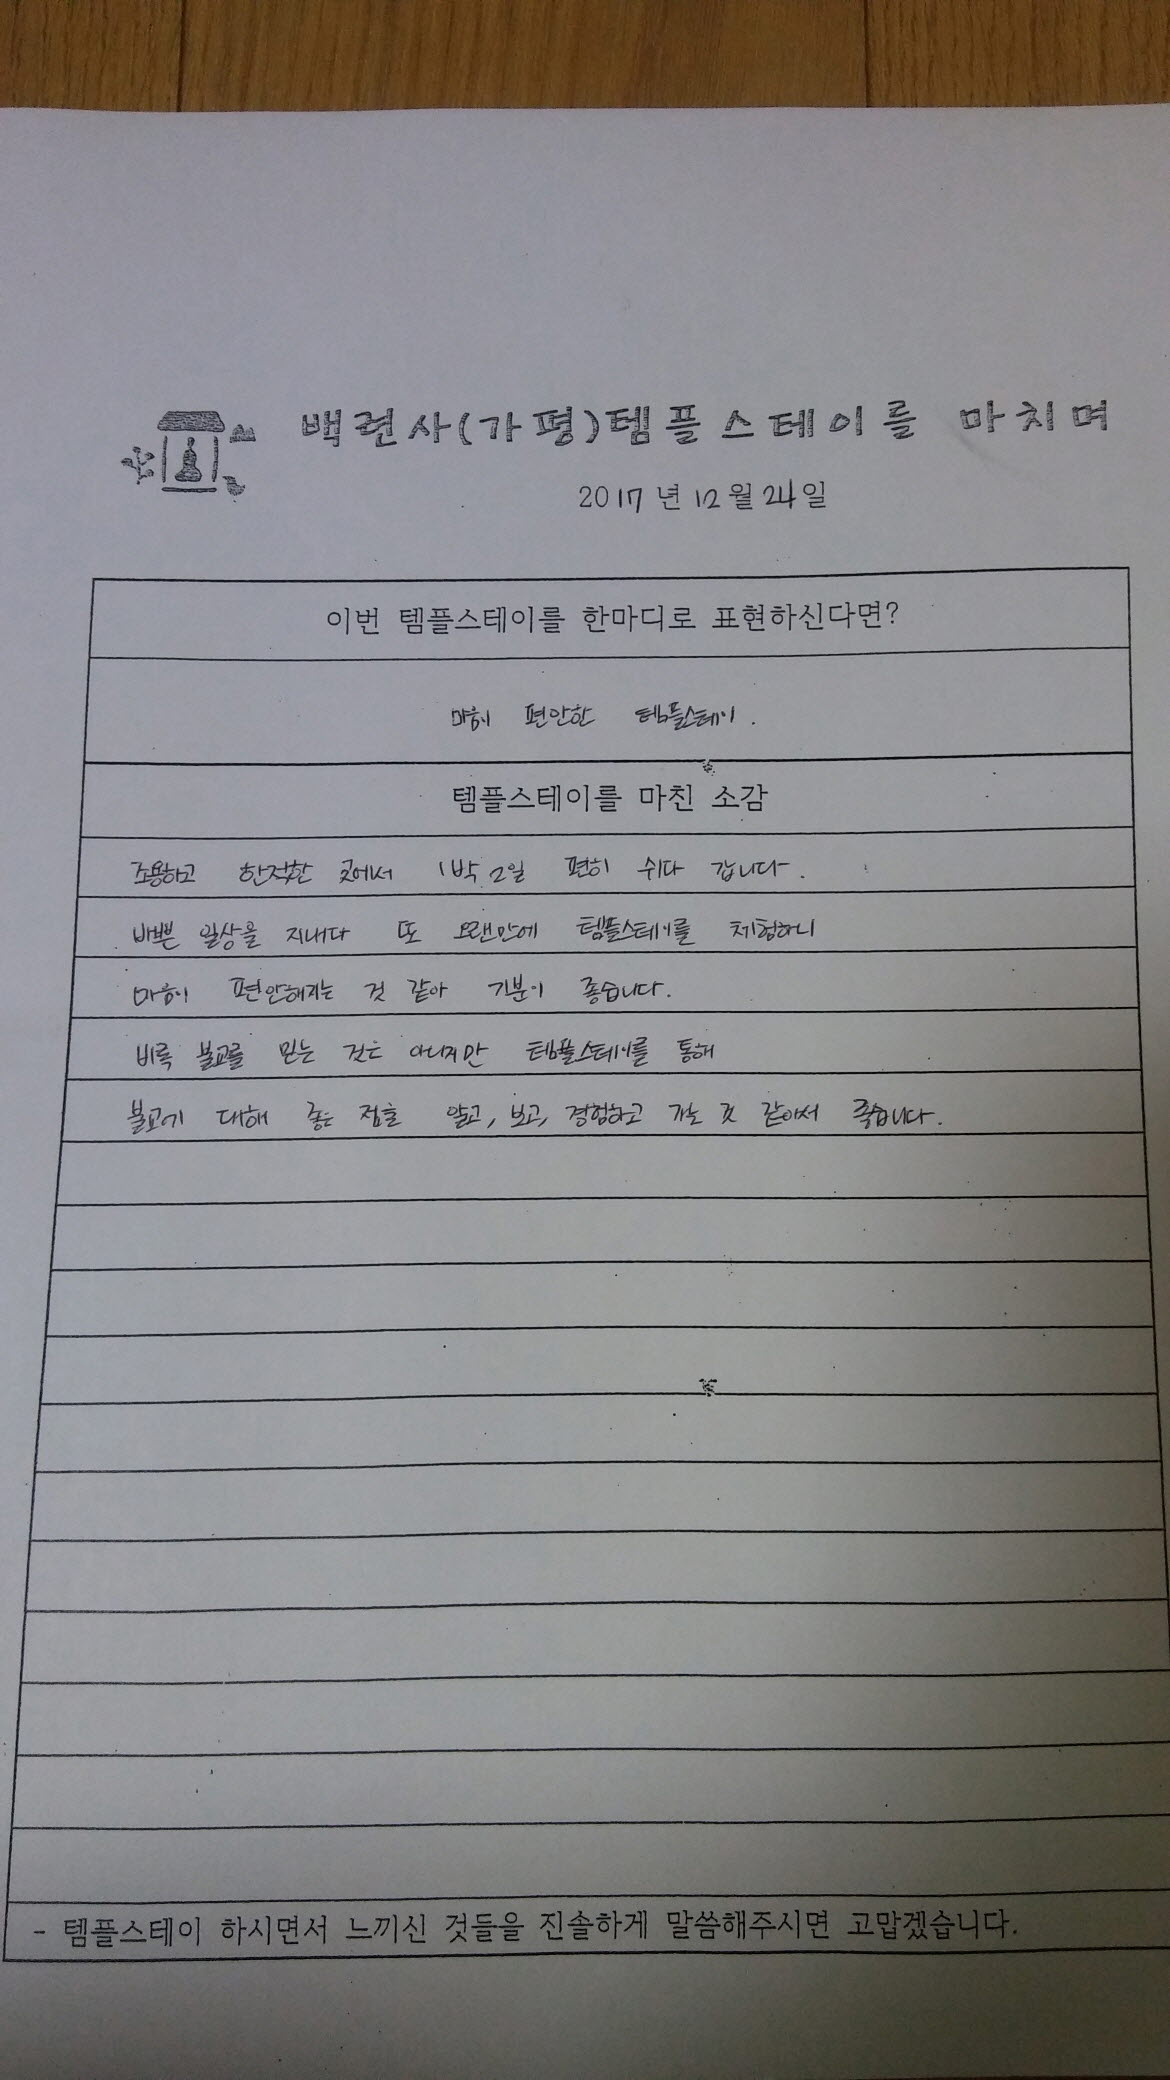 백련사(가평)템플스테이를 마치며
2017년 12월 24일
이번 템플스테이를 한마디로 표현하신다면?
마음이 편안한 템플스테이.
템플스테이를 마친 소감
조용하고 한적한 곳에서 1박 2일 편히 쉬다 갑니다.
바쁜 일상을 지내다 또 오랜만에 템플스테이를 체험하니
마음이 편안해지는 것 같아 기분이 좋습니다.
비록 불교를 믿는 것은 아니지만 템플스테이를 통해
불교에 대해 좋은 점을 알고, 보고, 경험하고 가는 것 같아서 좋습니다.
- 템플스테이 하시면서 느끼신 것들을 진솔하게 말씀해주시면 고맙겠습니다.